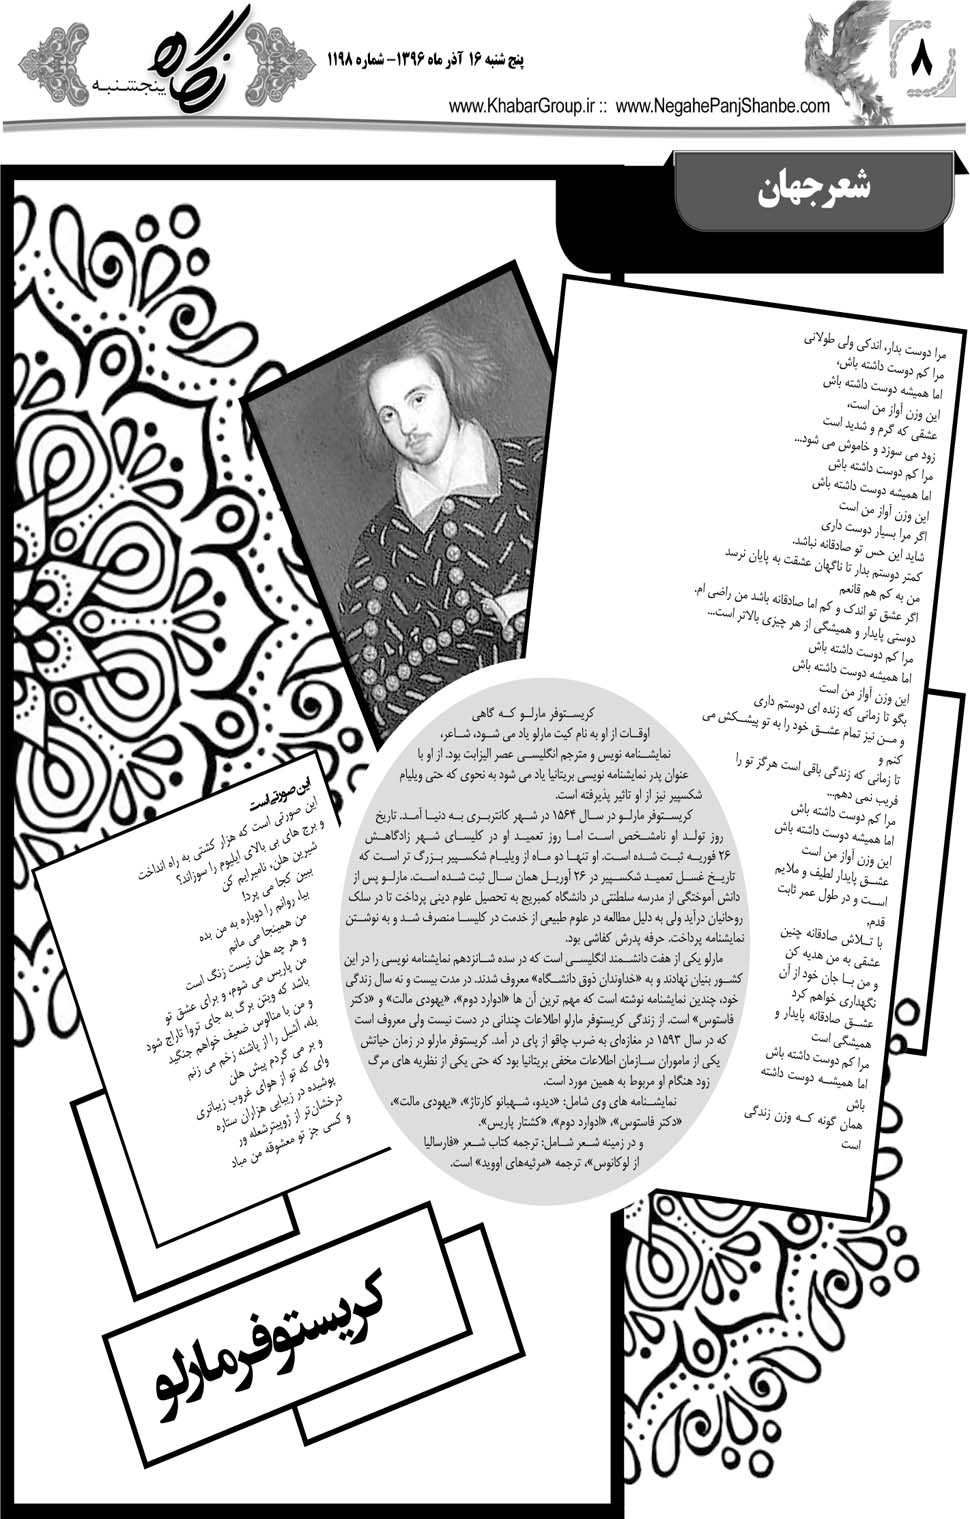 ۸
پنج شنبه ۱۶ آذر ماه ۱۳۹۶- شماره ۱۱۹۸
نگاه
پنجشنبه
www.KhabarGroup.ir :: www.NegahePanjShanbe.com
شعر جهان
مرا دوست بدار، اندکی ولی طولانی
مرا کم دوست داشته باش،
اما همیشه دوست داشته باش
این وزن آواز من است،
عشقی که گرم و شدید است
زود می سوزد و خاموش می شود...
مرا کم دوست داشته باش
اما همیشه دوست داشته باش
این وزن آواز من است
اگر مرا بسیار دوست داری
شاید این حس تو صادقانه نباشد.
کمتر دوستم بدار تا ناگهان عشقت به پایان نرسد
من به کم هم قانعم
اگر عشق تو اندک و کم اما صادقانه باشد من راضی ام.
دوستی پایدار و همیشگی از هر چیزی بالاتر است...
مرا کم دوست داشته باش
اما همیشه دوست داشته باش
این وزن آواز من است
بگو تا زمانی که زنده ای دوستم داری
و من نیز تمام عشق خود را به تو پیشکش می
کنم و
تا زمانی که زندگی باقی است هرگز تو را
فریب نمی دهم...
مرا کم دوست داشته باش
اما همیشه دوست داشته باش
این وزن آواز من است
عشق پایدار لطیف و ملایم
است و در طول عمر ثابت
قدم,
با تلاش صادقانه چنین
عشقی به من هدیه کن
و من با جان خود از آن
نگهداری خواهم کرد
عشق صادقانه پایدار و
همیشگی است
مرا کم دوست داشته باش
اما همیشه دوست داشته
باش
همان گونه که وزن زندگی
است
کریستوفر مارلو که گاهی
اوقات از او به نام کیت مارلو یاد می شود، شاعر،
نمایشنامه نویس و مترجم انگلیسی عصر الیزابت بود. از او با
عنوان پدر نمایشنامه نویسی بریتانیا یاد می شود به نحوی که حتی ویلیام
شکسپیر نیز از او تاثیر پذیرفته است.
کریستوفر مارلو در سال ۱۵۶۴ در شهر کانتربری به دنیا آمد. تاریخ
روز تولد او نامشخص است اما روز تعمید او در کلیسای شهر زادگاهش
۲۶ فوریه ثبت شده است. او تنها دو ماه از ویلیام شکسپیر بزرگ تر است که
تاریخ غسل تعمید شکسپیر در ۲۶ آوریل همان سال ثبت شده است. مارلو پس از
دانش آموختگی از مدرسه سلطنتی در دانشگاه کمبریج به تحصیل علوم دینی پرداخت تا در سلک
روحانیان درآید ولی به دلیل مطالعه در علوم طبیعی از خدمت در کلیسا منصرف شد و به نوشتن
نمایشنامه پرداخت. حرفه پدرش کفاشی بود.
مارلو یکی از هفت دانشمند انگلیسی است که در سده شانزدهم نمایشنامه نویسی را در این
کشور بنیان نهادند و به «خداوندان ذوق دانشگاه» معروف شدند. در مدت بیست و نه سال زندگی
خود، چندین نمایشنامه نوشته است که مهم ترین آن ها «ادوارد دوم»، «یهودی مالت» و «دکتر
فاستوس» است. از زندگی کریستوفر مارلو اطلاعات چندانی در دست نیست ولی معروف است
که در سال ۱۵۹۳ در مغازه‌ای به ضرب چاقو از پای در آمد. کریستوفر مارلو در زمان حیاتش
یکی از ماموران سازمان اطلاعات مخفی بریتانیا بود که حتی یکی از نظریه های مرگ
زود هنگام او مربوط به همین مورد است.
نمایشنامه های وی شامل: «دیدو، شهبانو کارتاژ»، «یهودی مالت»،
«دکتر فاستوس»، «ادوارد دوم»، «کشتار پاریس».
و در زمینه شعر شامل: ترجمه کتاب شعر «فارسالیا
از لوکانوس»، ترجمه «مرثیه‌های اووید» است.
این صورتی است
این صورتی است که هزار کشتی به راه انداخت
و برج های بی بالای ایلیوم را سوزاند؟
شیرین هلن، نامیرایم کن
ببین کجا می پرد!
بیا، روانم را دوباره به من بده
من همینجا می مانم
و هر چه هلن نیست زنگ است
من پاریس می شوم، و برای عشق تو
باشد که ویتن برگ به جای تروا تاراج شود
و من با منالوس ضعیف خواهم جنگید
بله، آشیل را از پاشنه زخم می زنم
و بر می گردم پیش هلن
وای که تو از هوای غروب زیباتری
پوشیده در زیبایی هزاران ستاره
درخشان‌تر از ژوپیتر شعله ور
و کسی جز تو معشوقه من مباد
کریستوفر مارلو